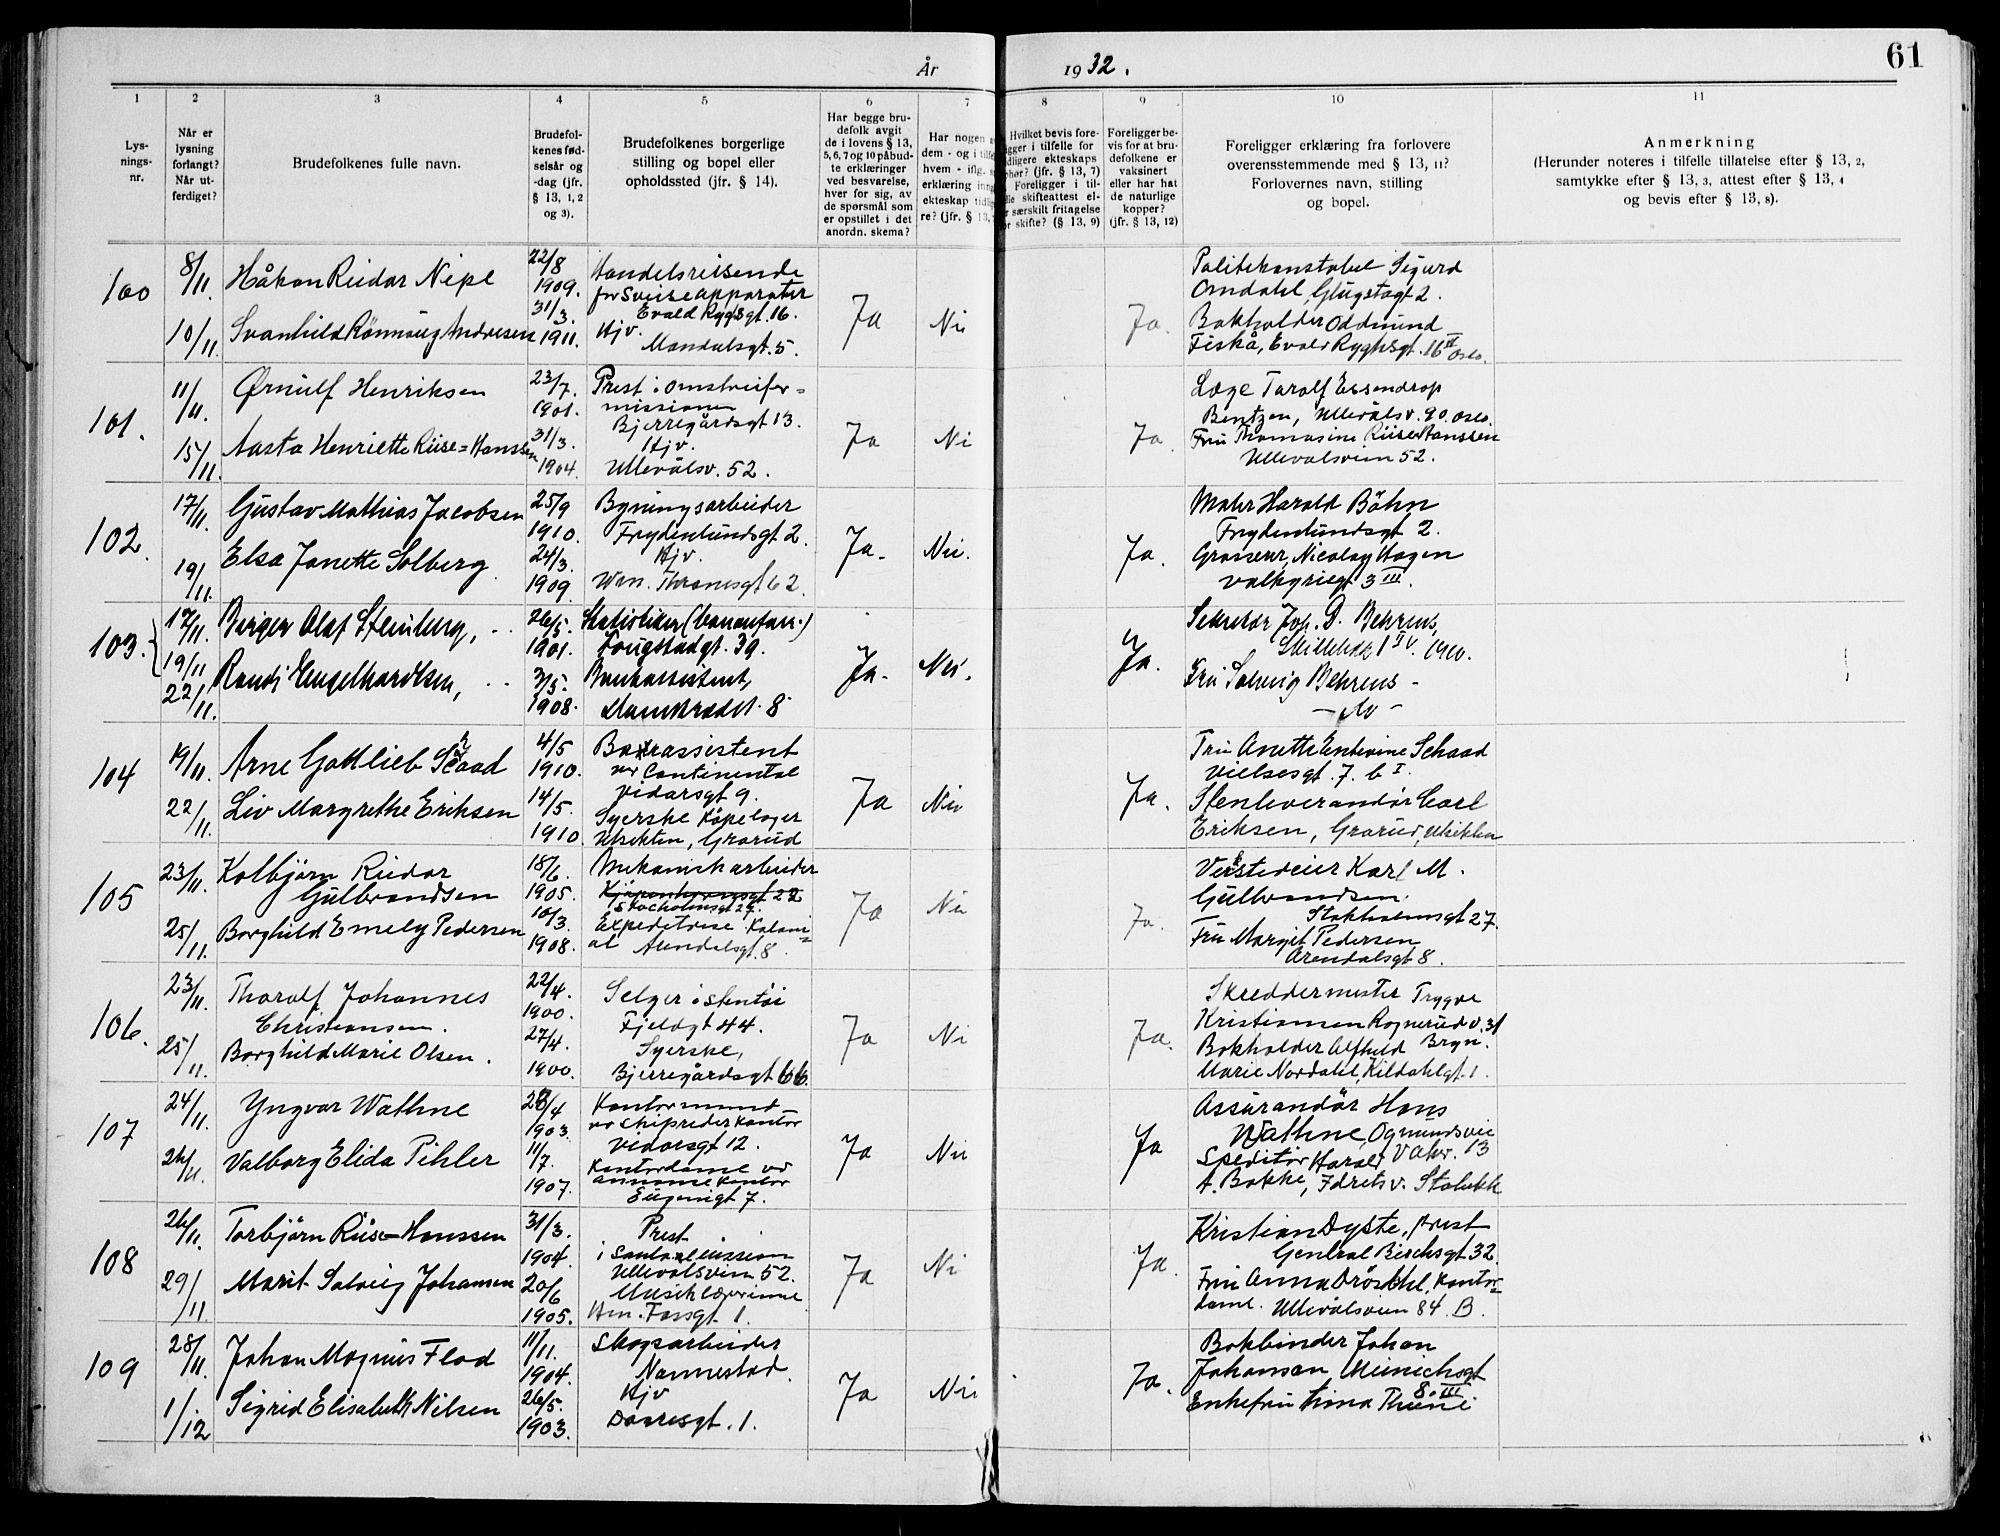 År 1932.
61
1 2 3 4 5 6 7 8 9 10 11
Lys-
nings-
nr.
Når er
lysning
forlangt?
Når ut-
ferdiget?
Brudefolkenes fulle navn.
Brudefol-
kenes fød-
selsår og
-dag (jfr.
§ 13, 1, 2
og 3).
Brudefolkenes borgerlige
stilling og bopel eller
opholdssted (jfr. § 14).
Har begge bru-
defolk avgit
de i lovens § 13,
5, 6, 7 og 10 påbud-
te erklæringer
ved besvarelse,
hver for sig, av
de spørsmål som
er opstillet i det
anordn. skema?
Har nogen
dem - og i
hvem - iflg.
erklæring
ekteskap
re? (jfr. § 13,
Hvilket bevis fore-
i tilfelle for
ekteskaps
(jfr. § 13, 7)
Foreligger i til-
skifteattest el-
særskilt fritagelse
skifte? (§ 13, 9)
Foreligger be-
vis for at bru-
defolkene er
vaksinert
eller har hat
de naturlige
kopper?
(jfr. § 13, 12)
Foreligger erklæring fra forlovere
overensstemmende med § 13, 11?
Forlovernes navn, stilling
og bopel.
Anmerkning
(Herunder noteres i tilfelle tillatelse efter § 13, 2,
samtykke efter § 13, 3, attest efter § 13, 4
og bevis efter § 13, 8).
100
8/11.
10/11.
Håkon Reidar Nipe
Svanhild Rönnaug Andresen
22/8
1909.
31/3.
1911.
Handelsreisende
for Sveiseapparater
Evald Rygsgt. 16.
Hjv.
Mandalsgt. 5.
Ja
Nei
Ja.
Politikonstabel Sigurd
Omdahl, Glugstagt 2.
Bokholder Oddmund
Fiskå, Evald Ryghsgt. 16 Oslo.
101.
11/11.
15/11.
Ørnulf Henriksen
Aasta Henriette Riise=Hanssen
23/7
1901.
31/3.
1904.
Prest i omstreifer=
missionen
Bjerregårdsgt 13.
Hjv.
Ullevålsv. 52.
Ja
Nei
Ja.
Læge Tarolf Essendrop
Bentzen, Ullevålsv. 90. Oslo.
Fru Thomasine Riise Hanssen
Ullevalsveien 52.
102.
17/11.
19/11.
Gustav Mathias Jacobsen
Elsa Janette Solberg.
25/9
1910.
24/3.
1909.
Bygningsarbeider
Frydenlundsgt 2.
Hjv.
Wm. Thranesgt 62.
Ja.
Nei.
Ja.
Maler Harald Böhn
Frydenlundsgt 2.
Grosserer, Nicolay Hagen
Valkyriegt 3 III.
103.
17/11.
19/11
22/11.
Birger Olaf Steinberg,
Randi Engelhardtsen,
26/5.
1901.
3/5.
1908.
Fougstadgt. 39.
Bankassistent,
Ja.
Nei.
Ja.
Sekretær Joh. D. Behrens,
Fru Solveig Behrens -
104
19/11.
22/11.
Arne Gottlieb Schaad
Liv Margrethe Eriksen
4/5
1910.
14/5.
1910
Barassistent
ved Continental
Vidarsgt 9.
Syerske Kåpelager
Utsikten, Grorud
Ja
Nei
Ja.
Fru Anette Entevine Schaad
Vielsesgt. 7. b I.
Stenleverandör Carl
Eriksen, Grorud, Utsikten
105
23/11.
25/11.
Kolbjörn Reidar
Gulbrandsen
Borghild Emely Pedersen
18/6.
1905.
10/3.
1908.
Mekanisk arbeider
Kjöpenhavnsgt 22
Stocholmsgt 27.
Expeditrise Koloni=
al Arendalsgt. 8.
Ja
Nei
Ja.
Verkstedeier Karl M.
Gulbrandsen.
Stokholmsgt 27.
Fru Margit Pedersen
Arendalsgt 8.
106.
23/11.
25/11.
Tharalf Johannes
Christiansen.
Borghild Marie Olsen.
22/4.
1900.
27/4.
1900.
Selger i stentöi
Fjeldgt 44.
Syerske,
Bjerregårdsgt 66.
Ja
Nei
Ja.
Skreddermester Trygve
Kristiansen Rognerud v. 31
Bokholder Alfhild Bryn.
Marie Nordahl, Kildahlgt. 1.
107
24/11.
26/11.
Yngvar Wathne
Valborg Elida Pihler
28/4
1903.
11/7.
1907.
Kontormand
vo Skipsrederkontor
Vidarsgt 12.
Kontordame vd
annonsekontor
Eugenigt 7.
Ja
Nei
Ja
Assurandör Hans
Wathne, Ogmundsvei
Speditör Harald Vaker. 13
A. Bakke, Idretsv. Stabekk
108
26/11.
29/11
Torbjörn Riise-Hanssen
Marit Solveig Johansen
31/3.
1904.
20/6
1905.
Prest
i Santalmission
Ullevålsveien 52.
Musiklærerinne
Hm. Fossgt 1.
Ja
Nei
Ja.
Kristian Dyste, Prest
General Birchsgt 32.
Fru Anna Dröschel, Kontor=
dame. Ullevålsveien 84. B.
109
28/11.
1/12
Johan Magnus Flod
Sigrid Elisabeth Nilsen
11/11.
1904.
26/5.
1903.
Skogsarbeider
Nannestad.
Hjv
Daaesgt. 1.
Ja
Nei
Ja.
Bokbinder Johan
Johansen, Münichsgt
8. III
Enkefru Anna Thune